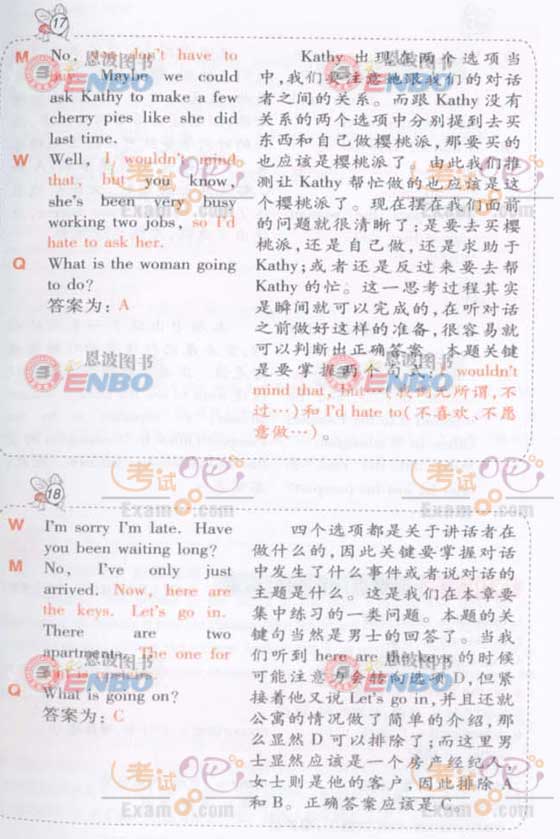 17
M No, you don't have to
buy. Maybe we could
ask Kathy to make a few
cherry pies like she did
last time.
W Well, I wouldn't mind
that, but you know,
she's been very busy
working two jobs, so I'd
hate to ask her.
Q What is the woman going
to do?
答案为：A
Kathy 出现在两个选项当
中，我们要注意她跟我们的对话
者之间的关系。而跟 Kathy 没有
关系的两个选项中分别提到去买
东西和自己做樱桃派，那要买的
也应该是樱桃派了！由此我们推
测让 Kathy 帮忙做的也应该是这
个樱桃派了。现在摆在我们面前
的问题就很清晰了：是要去买樱
桃派，还是自己做，还是求助于
Kathy；或者还是反过来要去帮
Kathy 的忙。这一思考过程其实
是瞬间就可以完成的，在听对话
之前做好这样的准备，很容易就
可以判断出正确答案。本题关键
是要掌握两个句式：I wouldn't
mind that, but…(我倒无所谓，不
过…)和 I'd hate to(不喜欢、不愿
意做…)。
18
W I'm sorry I'm late. Have
you been waiting long?
M No, I've only just
arrived. Now, here are
the keys. Let's go in.
There are two
apartments. The one for
Q What is going on?
答案为：C
四个选项都是关于讲话者在
做什么的，因此关键要掌握对话
中发生了什么事件或者说对话的
主题是什么。这是我们在本章要
集中练习的一类问题。本题的关
键句当然是男士的回答了。当我
们听到 here are the keys 的时候
可能注意力会转向选项 D，但紧
接着他又说 Let's go in，并且还就
公寓的情况做了简单的介绍，那
么显然 D 可以排除了；而这里男
士显然应该是一个房产经纪人，
女士则是他的客户，因此排除 A
和 B。正确答案应该是 C。
恩波图书
ENBO
恩波图书
ENBO
考试吧
Exam8.com
考试吧
Exam8.com
恩波图书
ENBO
恩波图书
ENBO
考试吧
Exam8.com
考试吧
Exam8.com
恩波图书
ENBO
恩波图书
ENBO
考试吧
Exam8.com
考试吧
Exam8.com